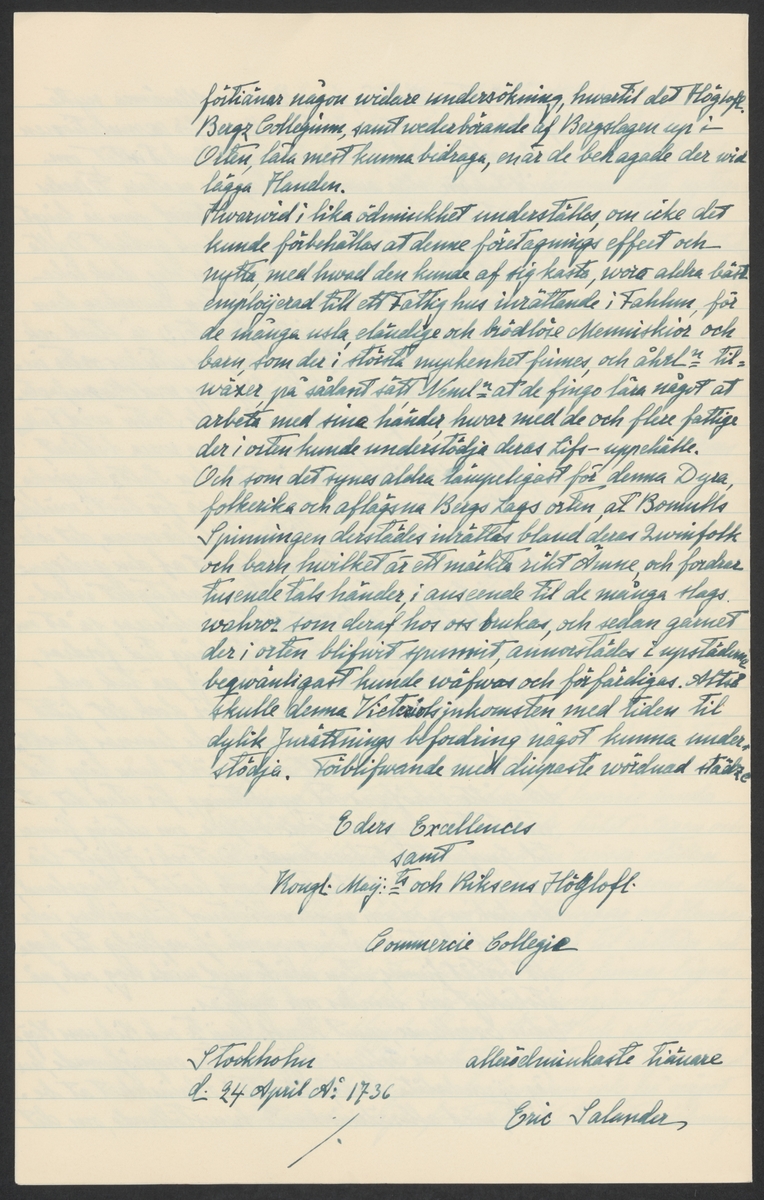 förtiänar någon widare undersökning, hwartil det Höglofl.
Bergz Collegium, samt wederbörande af Bergslagen up i
Orten, lära mest kunna bidraga, enär de behagade der wid
lägga Handen.
Hwarwid i lika ödmiukhet underställes, om icke det
kunde förbehållas at denne företagnings effect och
nytta, med hwad den kunde af sig kasta, wore aldra bäst
employerad till ett Fattig hus inrättande i Fahlun, för
de många usla, eländige och brödlöse Menniskior och
barn, som der i största myckenhet finnes, och åhrl:n til=
wäxer, på sådant sätt Neml:n at de fingo lära något at
arbeta med sina händer, hwar med de och flere fattige
der i orten kunde understödja deras Lifs-uppehälle.
Och som det synes aldra lämpeligast för denna Dyra,
folkerika och aflägsna Bergs Lags orten, at Bomulls
Spinningen derstädes inrättas bland deras Qwinfolk
och barn, hwilket är ett mäckta rikt Ämne, och fordrar
tusende tals händer, i anseende til de många slags
wahror som deraf hos oss brukas, och sedan garnet
der i orten blifwit spunnit, annorstädes i upstäderne
beqwämligast kunde wäfwas och förfärdigas. Altså
skulle denna Victriolsinkomsten med tiden til
dylik Inrättnings befordring något kunna under-
stödja. Förblifwande med diupaste wördnad städze
Eders Excellences
samt
Kongl. Maij:ts och Riksens Höglofl.
Commercie Collegie
Stockholm
allerödmiukaste tiänare
d. 24 April A:o 1736
Eric Salander